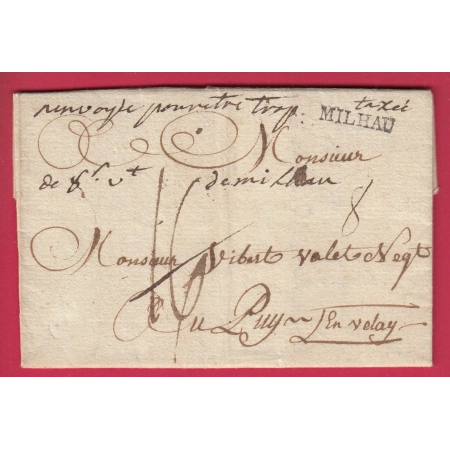 renvoyée pour etre trop taxée
MILHAU
Monsieur
de milhau
8
Monsieur Vibert Valet Negt
16
Au Puy En velay